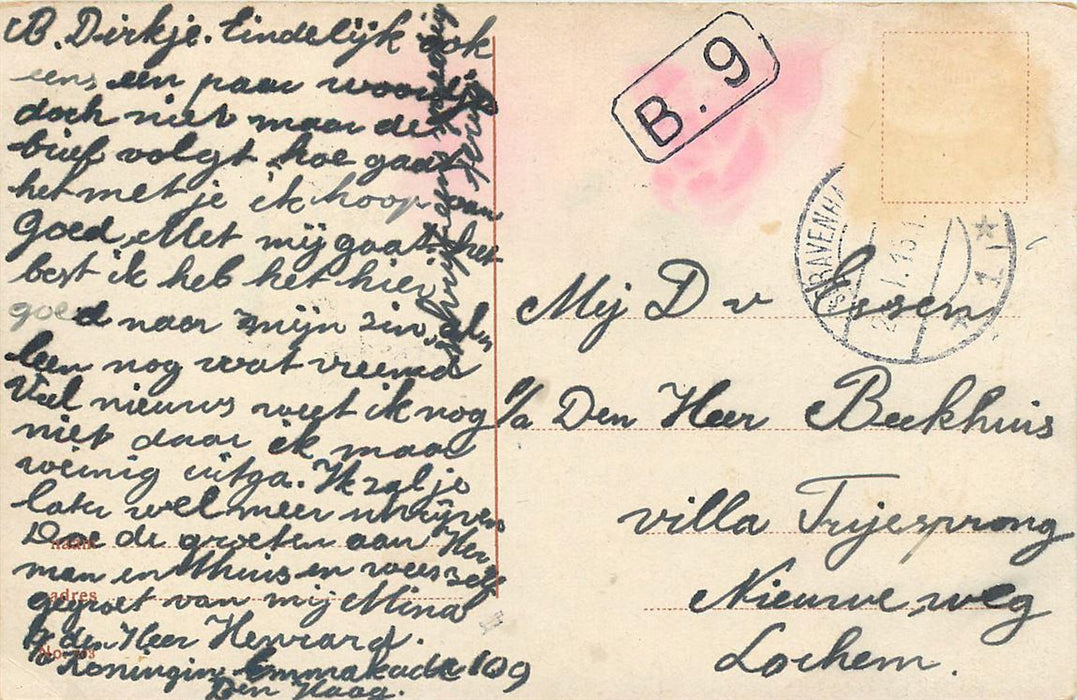 B. Dirkje. Eindelijk ook
eens een paar woordjes
doch niet maar de
brief volgt hoe gaat
het met je ik hoop van
Goed. Met mij gaat het
best ik heb het hier
goed naar mijn zin, al„
leen nog wat vreemd
Veel nieuws weet ik nog
niet daar ik maar
weinig uitga. Ik zal je
later wel meer schrijven
Doe de groeten aan Her
man en thuis en wees zelf
gegroet van mij Mina
p/a den Heer Henrard.
Koningin Emmakade 109
Den Haag.
schrijf eens spoedig
terug
B. 9
'S GRAVENHA
1
Mej D v Essen
p/a Den Heer Beekhuis
villa Trijesprong
Nieuwe weg
Lochem.
naam
adres